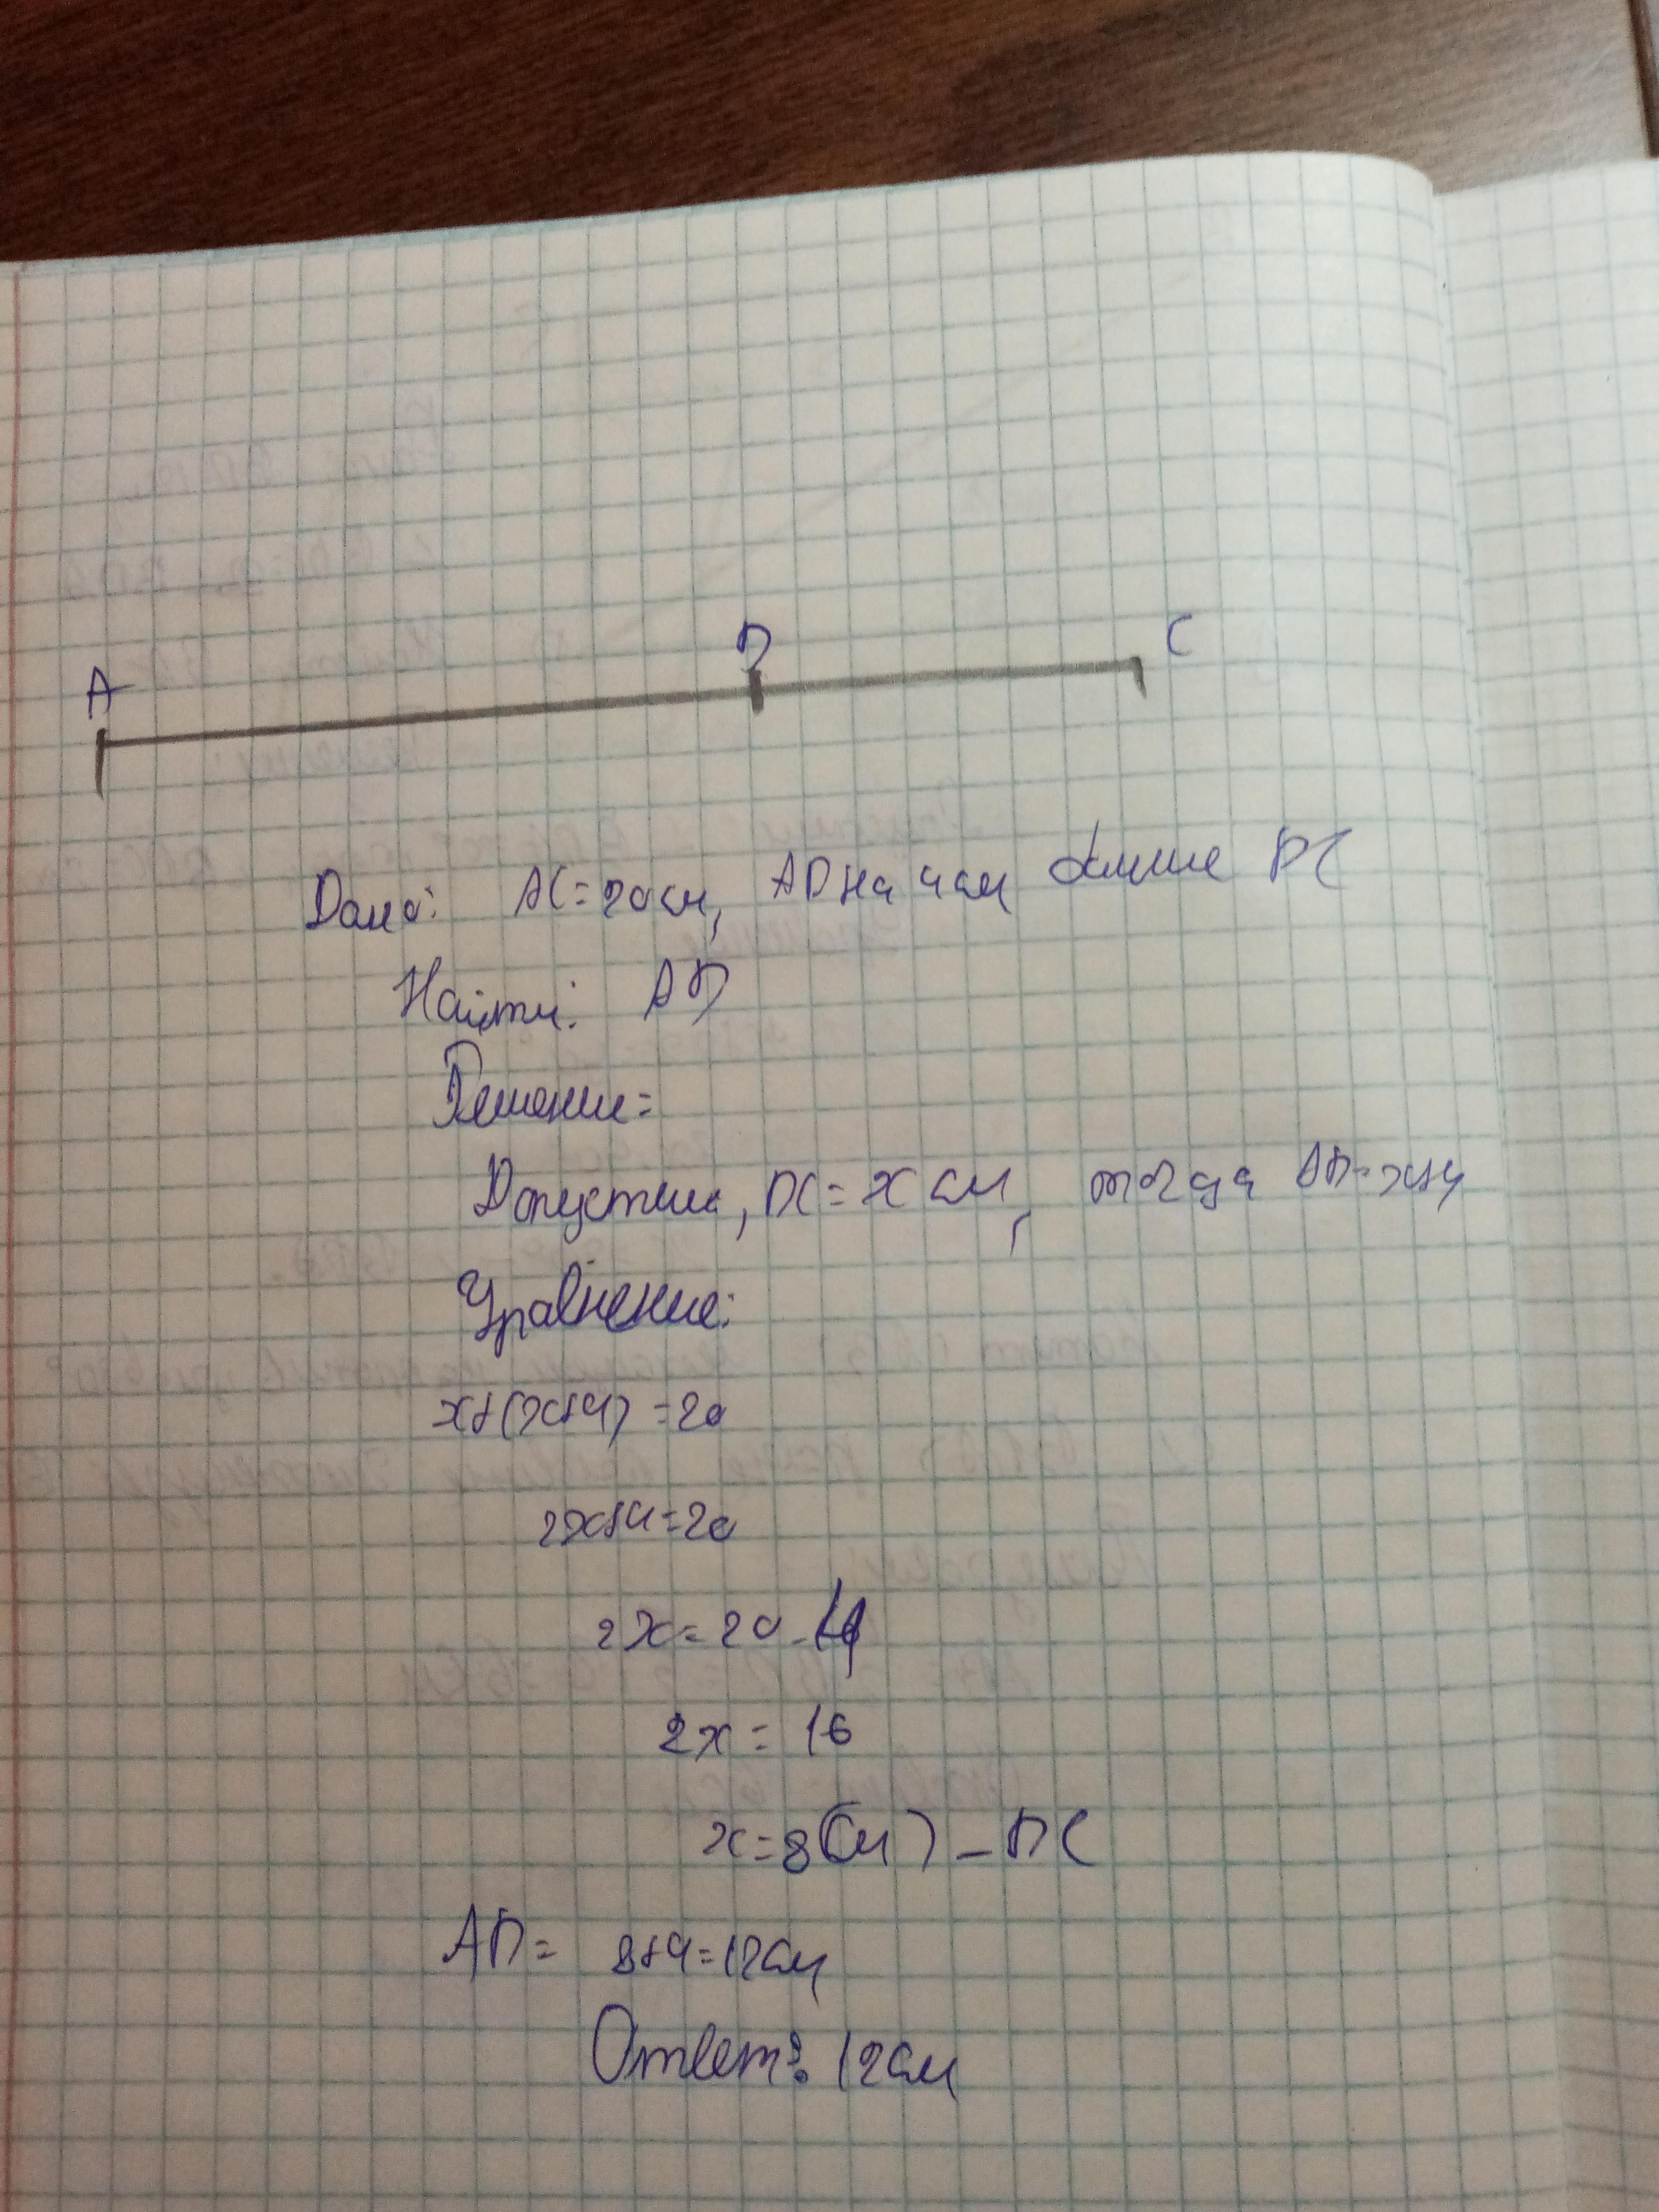 A
D
C
Дано: AC=20см, AD на 4см длине DC
Найти: AD
Решение=
Допустим, DC=x см, тогда AD=x+4
Уравнение:
x+(x+4)=20
2x+4=20
2x=20-4
2x=16
x=8(см)-DC
AD= 8+4=12см
Ответ: 12см